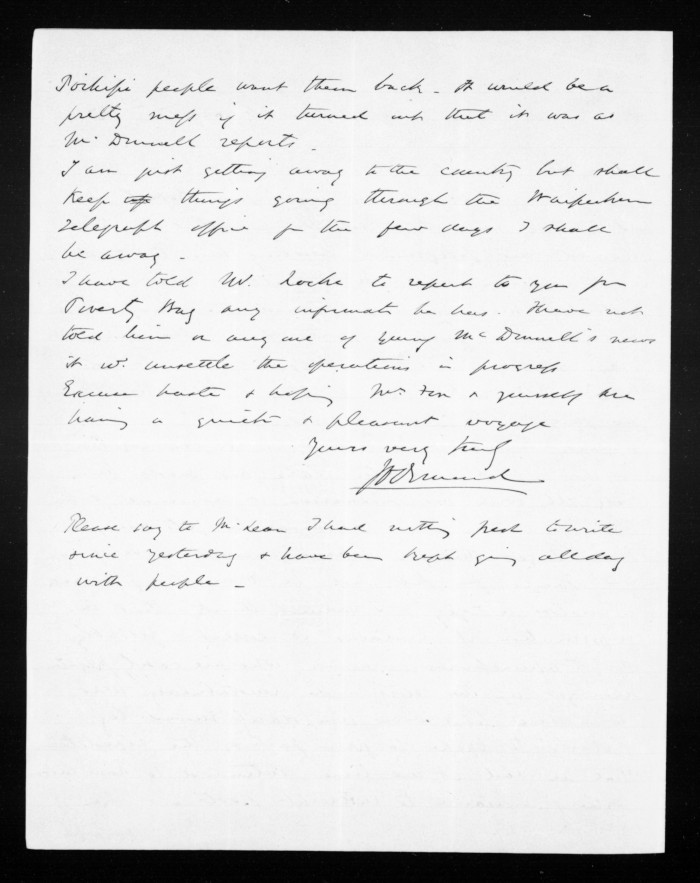 Poihipi people want them back - It would be a
pretty mess if it turned out that it was as
Mc Donnell reports -
I am just getting away to the country but shall
keep things going through the Waipukurau
Telegraph office for the few days I shall
be away -
I have told Mr. Locke to report to you for
Poverty Bay any informatn he has. I have not
told him or any one of young McDonnell's news
it wd. unsettle the operations in progress
Excuse haste & hoping Mrs Fox & yourself are
having a quick & pleasant voyage
Yours very truly
JD Ormond
Please say to McLean I had nothing fresh to write
since yesterday & have been kept going all day
with people -